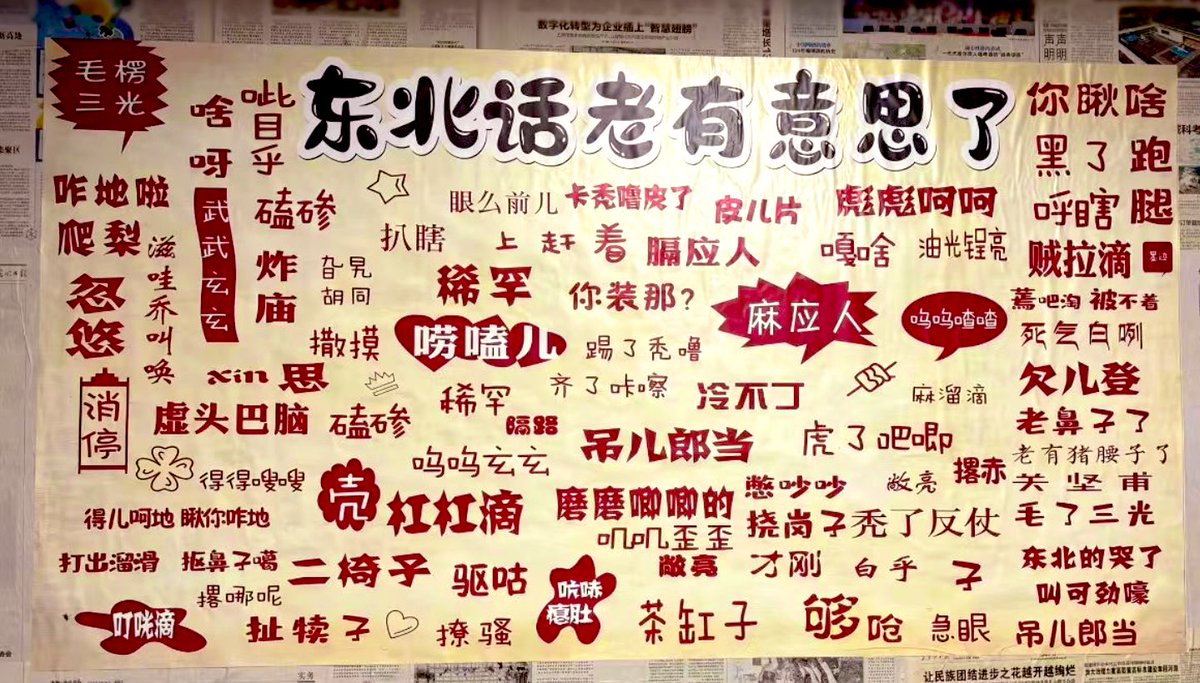 数字化转型为企业插上“智慧翅膀”
声声
明明
毛楞
三光
东北话老有意思了
啥呀
呲目乎
你瞅啥
黑了
跑腿
呼瞎
咋地啦
武武玄玄
磕碜
眼么前儿
卡秃噜皮了
皮儿片
彪彪呵呵
爬梨
滋哇乔叫唤
炸庙
旮旯
胡同
扒瞎
上赶着
膈应人
嘎啥
油光锃亮
贼拉滴
忽悠
稀罕
你装那?
麻应人
呜呜喳喳
蔫吧淘
被不着
死气白咧
撒摸
唠嗑儿
踢了秃噜
xin思
稀罕
齐了咔嚓
冷不丁
麻溜滴
欠儿登
消停
虚头巴脑
磕碜
隔路
吊儿郎当
虎了吧唧
老鼻子了
老有猪腰子了
得得嗖嗖
呜呜玄玄
憋吵吵
敞亮
撂赤
关坚甫
得儿呵地
瞅你咋地
壳
杠杠滴
磨磨唧唧的
叽叽歪歪
挠岗子
秃了反仗
毛了三光
打出溜滑
抠鼻子噶
二椅子
驱咕
敞亮
才刚
白乎
子
东北的哭了
撂哪呢
叫可劲嚎
叮咣滴
扯犊子
撩骚
吭哧
瘪肚
茶缸子
够呛
急眼
吊儿郎当
让民族团结进步之花越开越绚烂